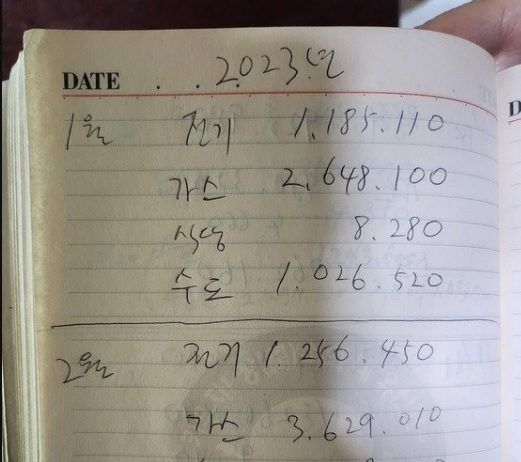 DATE . . 2023년
1월 전기 1.185.110
가스 2.648.100
식당 8.280
수도 1.026.520
2월 전기 1.256.450
가스 3.629.010
D